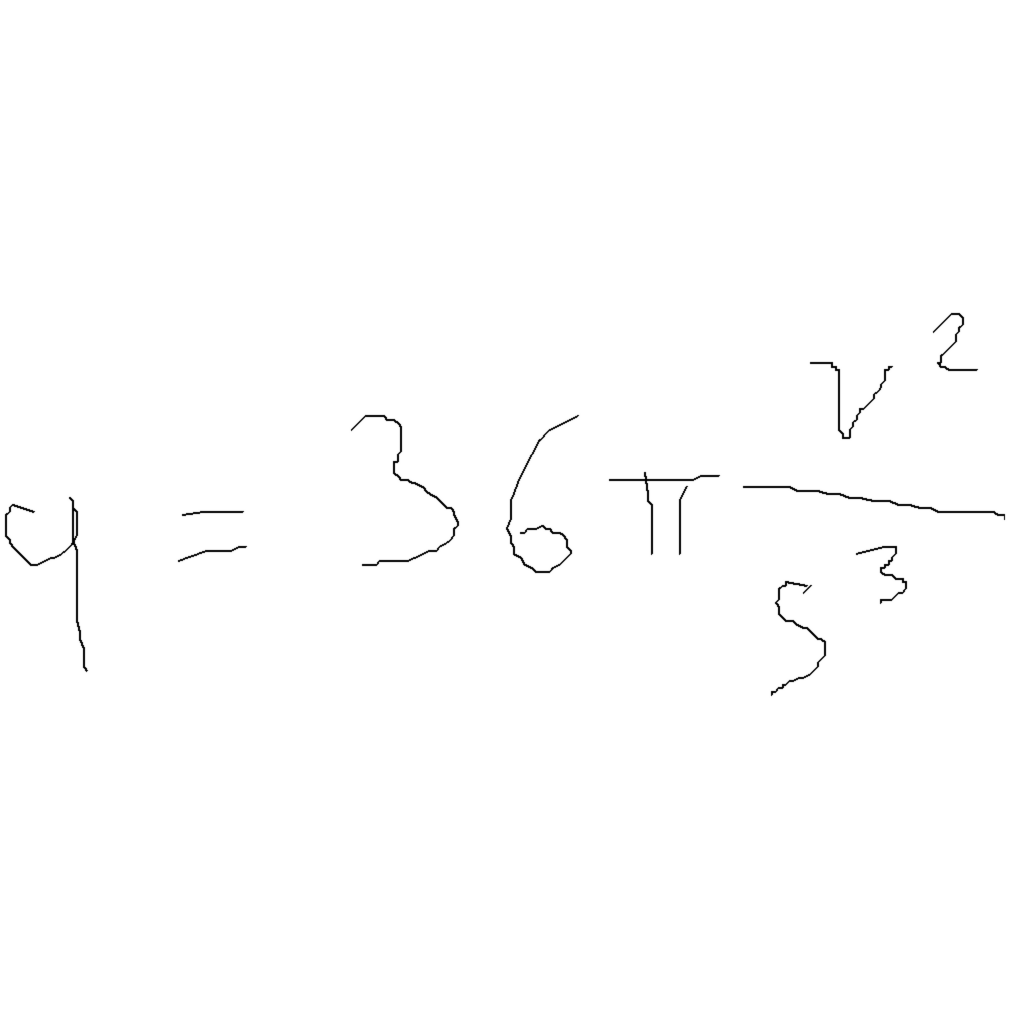 q = 36π \frac{V^2}{S^3}